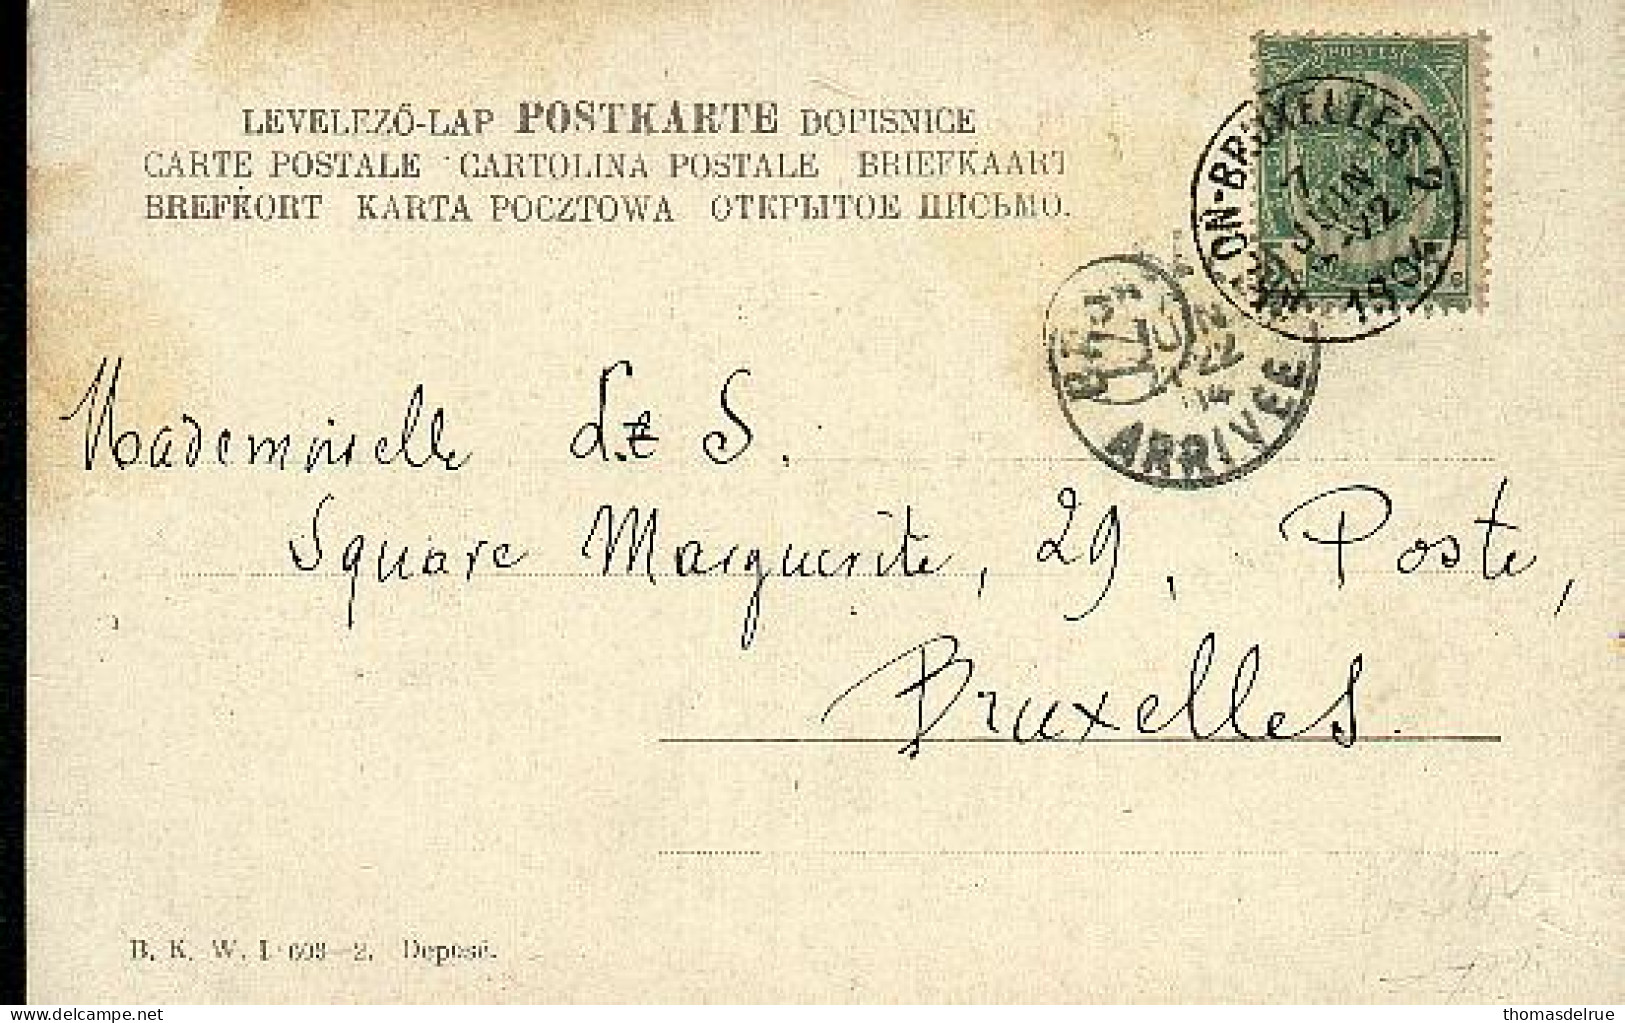 LEVELEZŐ-LAP POSTKARTE DOPISNICE
CARTE POSTALE CARTOLINA POSTALE BRIEFKAART
BREFKORT KARTA POCZTOWA ОТКРЫТОЕ ПИСЬМО.
POSTES
BRUXELLES 2
7
JUIN
1904
JUIN
22
14
ARRIVÉE
Mademoiselle L.z S.
Square Marguerite, 29, Poste,
Bruxelles
B. K. W. I 603-2. Deposé.
Read the writing
thomasdelrue